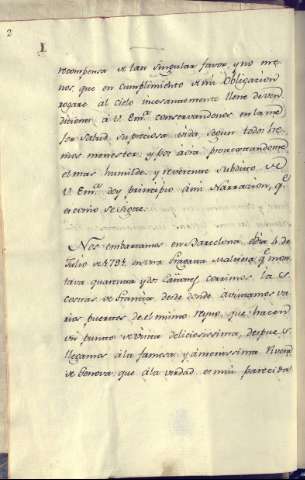 2
I
recompensa de tan singular favor, y no me-
nos, que en cumplimiento de mi obligacion
rogare al cielo incesantemente llene de ven-
diciones á V. Emª conservandonos en la me-
jor salud, su preciosa vida, segun todos he-
mos menester, y por aora protextandome
el mas humilde, y reverente subdito de
V. Emª doy principio á mi Narrazion, qe
es como se sigue.
Nos embarcamos en Barcelona, dia 4 de
Julio de 1784, en una Fragata Maltesa, q mon-
tava quarenta y dos Cañones, corrimos las
costas de Francia desde donde avistamos va-
rios puertos de el mismo reyno, que hacen
un punto de vista deliciosissima, despues
llegamos á la famosa, y amenissima Rivera
de Genova, que á la verdad es mui parecida